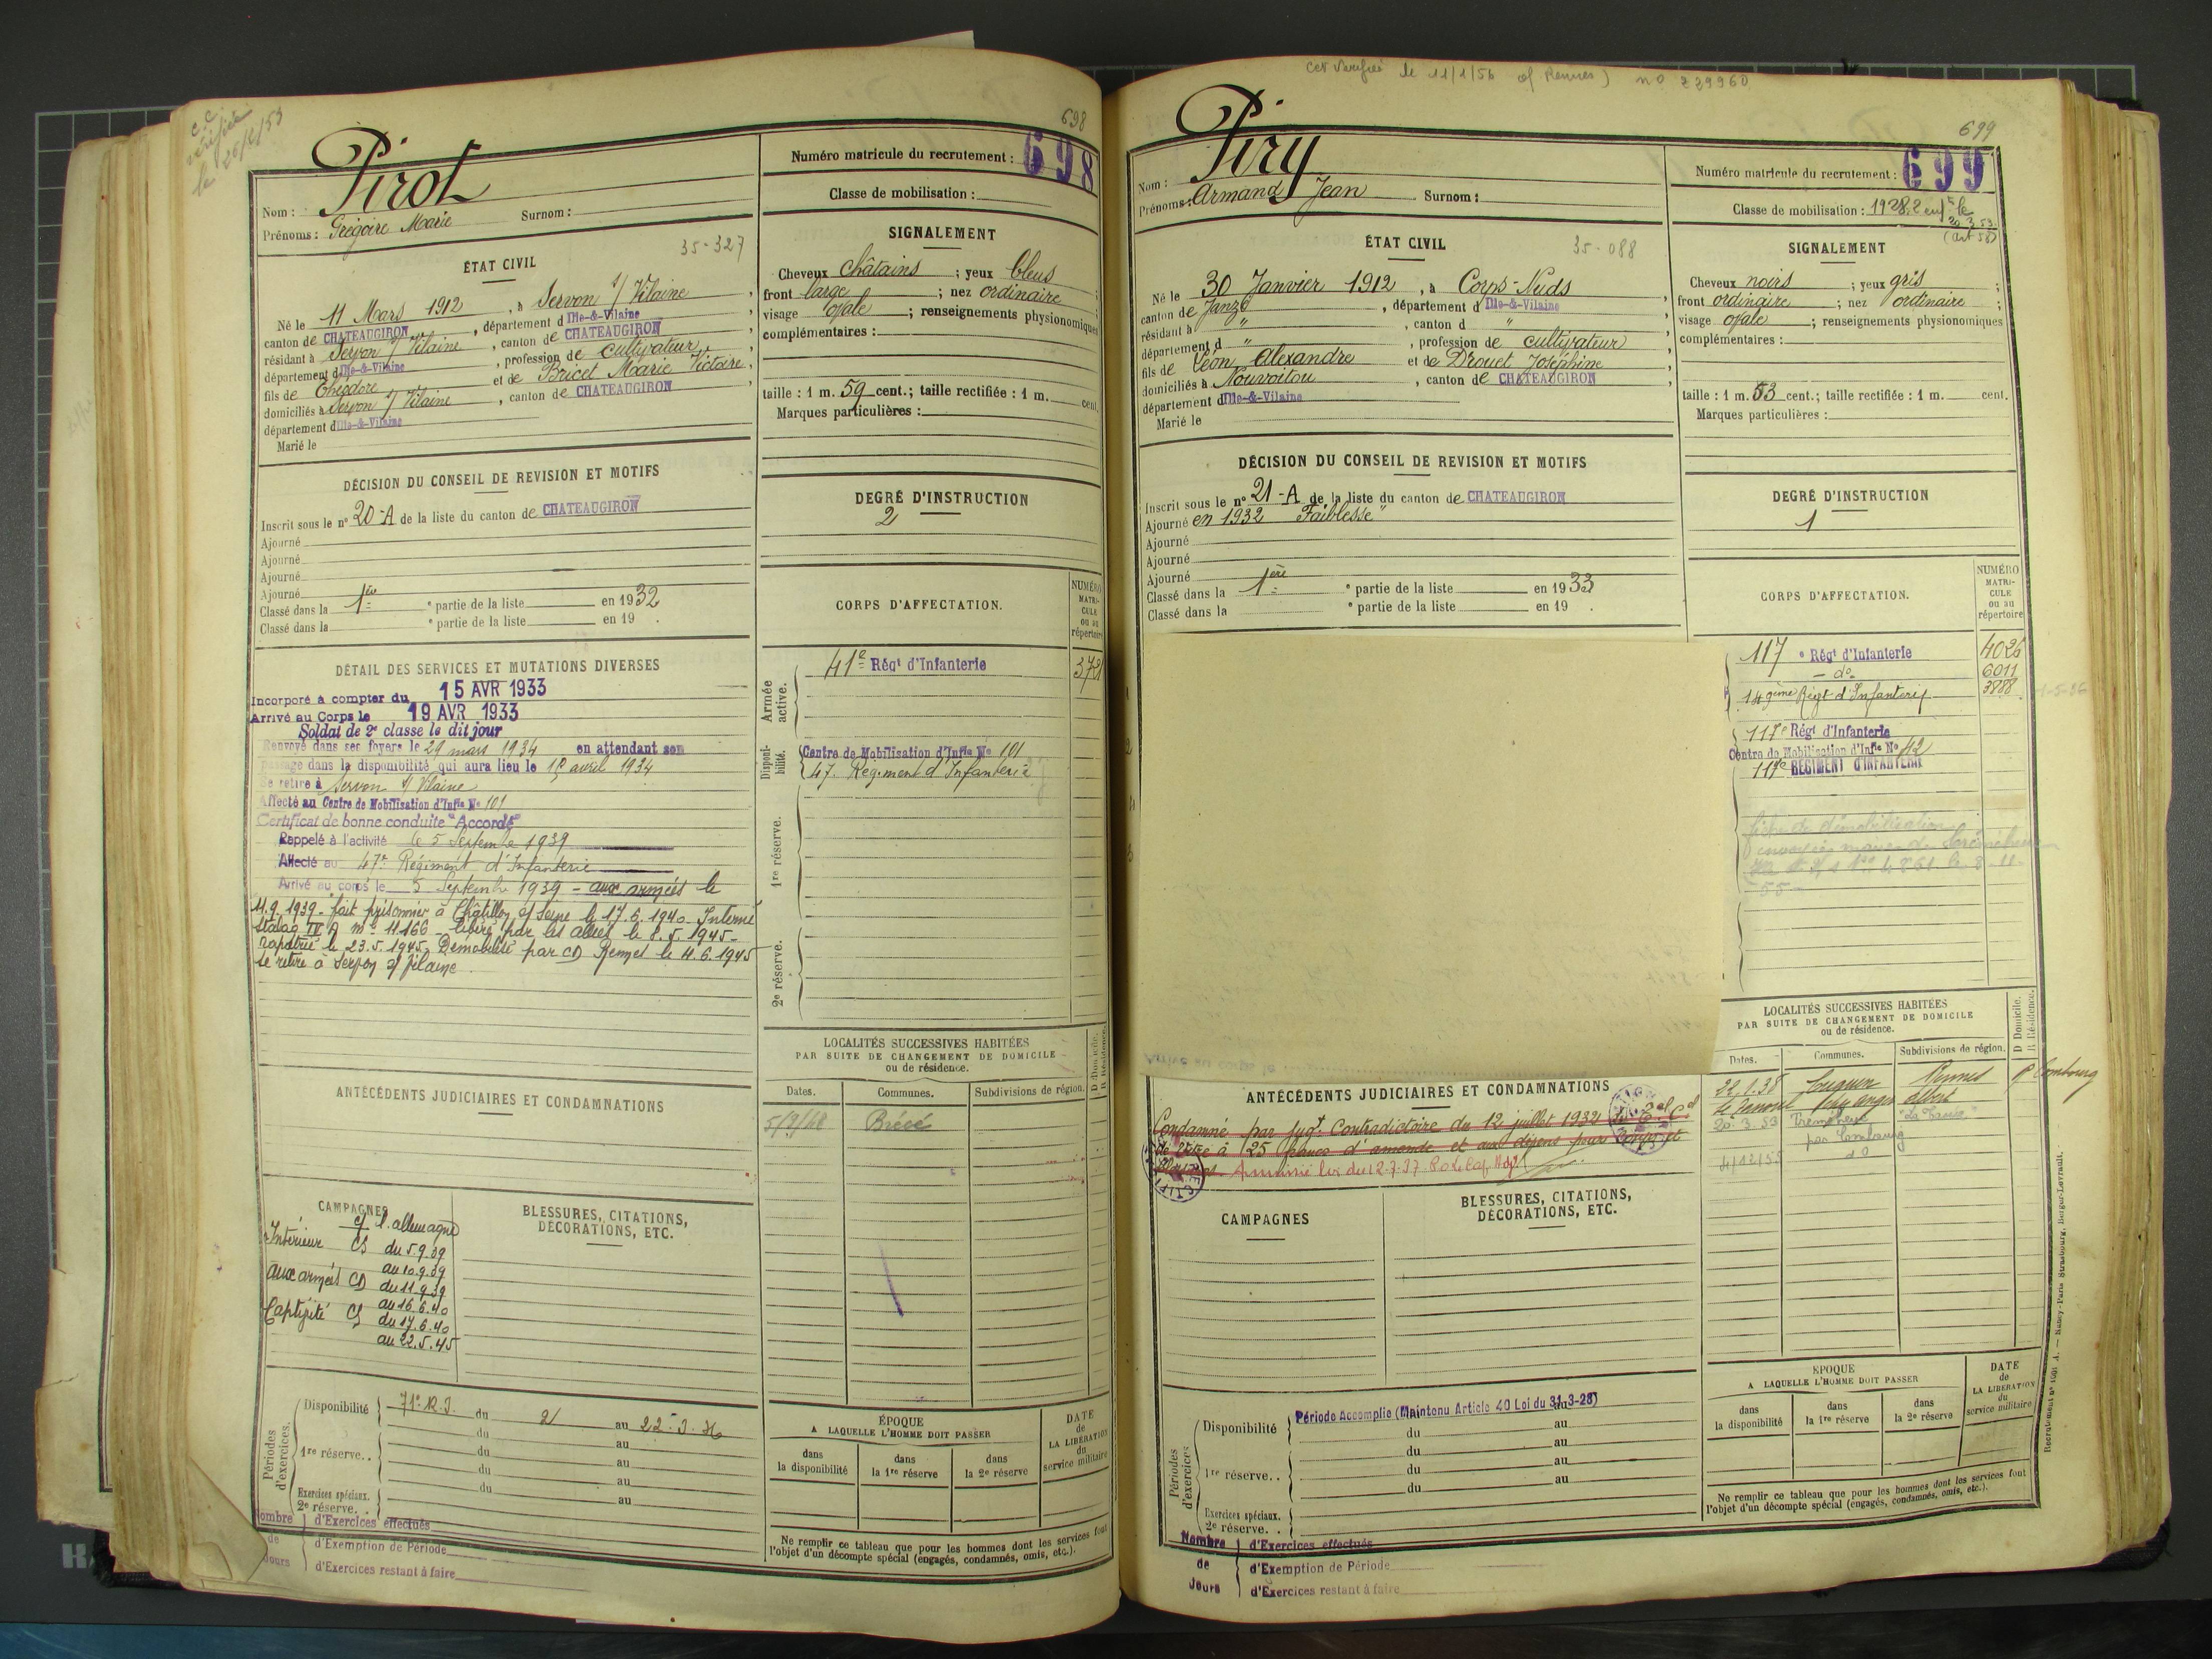 c.c
vérifié
le 20/2/53
698
Nom : Pirot
Prénoms : Grégoire Marie Surnom :
Numéro matricule du recrutement : 698
Classe de mobilisation :
35-327
ÉTAT CIVIL
Né le 11 Mars 1912 , à Servon s/ Vilaine ,
canton de CHATEAUGIRON , département d Ille-&-Vilaine ,
résidant à Servon s/ Vilaine , canton de CHATEAUGIRON ,
département d Ille-&-Vilaine , profession de cultivateur ,
fils de Théodore et de Bricet Marie Victoire ,
domiciliés à Servon s/ Vilaine , canton de CHATEAUGIRON ,
département d Ille-&-Vilaine
Marié le
SIGNALEMENT
Cheveux châtains ; yeux bleus ;
front large ; nez ordinaire ;
visage ovale ; renseignements physionomiques
complémentaires :
taille : 1 m. 59 cent. ; taille rectifiée : 1 m. cent.
Marques particulières :
DÉCISION DU CONSEIL DE REVISION ET MOTIFS
Inscrit sous le n° 20-A de la liste du canton de CHATEAUGIRON
Ajourné
Ajourné
Ajourné
Ajourné
Classé dans la 1ère e partie de la liste en 1932
Classé dans la e partie de la liste en 19 .
DEGRÉ D'INSTRUCTION
2
DÉTAIL DES SERVICES ET MUTATIONS DIVERSES
Incorporé à compter du 15 AVR 1933
Arrivé au Corps le 19 AVR 1933
Soldat de 2e classe le dit jour
Renvoyé dans ses foyers le 29 mars 1934 en attendant son
passage dans la disponibilité qui aura lieu le 15 avril 1934
Se retire à Servon s/ Vilaine
Affecté au Centre de Mobilisation d'Infie No 101
Certificat de bonne conduite "Accordé"
Rappelé à l'activité le 5 Septembre 1939
Affecté au 47e Régiment d'Infanterie
Arrivé au corps le 5 Septembre 1939 - aux armées le
11.9.1939 - fait prisonnier à Châtillon s/ Seine le 17.6.1940 - Interné
Stalag IV A me 11166 - libéré par les alliés le 8.5.1945 -
rapatrié le 23.5.1945 - Démobilisé par CD Rennes le 4.6.1945
Se retire à Servon s/ Vilaine.
CORPS D'AFFECTATION.
NUMÉRO MATRI-CULE ou au répertoire
Armée active.
41e Régt d'Infanterie
Disponi-bilité.
Centre de Mobilisation d'Infie No 101
47. Régiment d'Infanterie
1re réserve.
2e réserve.
ANTÉCÉDENTS JUDICIAIRES ET CONDAMNATIONS
LOCALITÉS SUCCESSIVES HABITÉES
PAR SUITE DE CHANGEMENT DE DOMICILE
ou de résidence.
D Domicile. R Résidence.
Dates. Communes. Subdivisions de région.
Brécé
CAMPAGNES
c/ l'allemagne
Intérieur CS du 5.9.39
au 10.9.39
aux armées CD du 11.9.39
au 16.6.40
Captivité CS du 17.6.40
au 22.5.45
BLESSURES, CITATIONS,
DÉCORATIONS, ETC.
Périodes d'exercices.
Disponibilité du 2 au
du au
1re réserve.. du au
du au
du au
Exercices spéciaux.
2e réserve. . au
Nombre de Jours
d'Exercices effectués
d'Exemption de Période
d'Exercices restant à faire
ÉPOQUE
A LAQUELLE L'HOMME DOIT PASSER
dans la disponibilité
dans la 1re réserve
dans la 2e réserve
DATE de LA LIBÉRATION du service militaire
Ne remplir ce tableau que pour les hommes dont les services font
l'objet d'un décompte spécial (engagés, condamnés, omis, etc.).
cct Verifiée le 11/1/56 of Rennes) no 229960
699
Nom : Piry
Prénoms : Armand Jean Surnom :
Numéro matricule du recrutement : 699
Classe de mobilisation : 1928
20.3.53
(art 58)
35-088
ÉTAT CIVIL
Né le 30 Janvier 1912 , à Corps-Nuds ,
canton de Janzé , département d Ille-&-Vilaine ,
résidant à " , canton d " ,
département d " , profession de cultivateur ,
fils de Léon Alexandre et de Drouet Joséphine ,
domiciliés à Nouvoitou , canton de CHATEAUGIRON ,
département d Ille-&-Vilaine
Marié le
SIGNALEMENT
Cheveux noirs ; yeux gris ;
front ordinaire ; nez ordinaire ;
visage ovale ; renseignements physionomiques
complémentaires :
taille : 1 m. 53 cent. ; taille rectifiée : 1 m. cent.
Marques particulières :
DÉCISION DU CONSEIL DE REVISION ET MOTIFS
Inscrit sous le n° 21-A de la liste du canton de CHATEAUGIRON
Ajourné en 1932 "Faiblesse"
Ajourné
Ajourné
Ajourné
Classé dans la 1ère e partie de la liste en 1933
Classé dans la e partie de la liste en 19 .
DEGRÉ D'INSTRUCTION
1
CORPS D'AFFECTATION.
NUMÉRO MATRI-CULE ou au répertoire
117 e Régt d'Infanterie 4026
- do - 6011
149ème Régt d'Infanterie 3888
117e Régt d'Infanterie
Centre de Mobilisation d'Infie No 42
117e RÉGIMENT D'INFANTERIE
Arrivé au corps le
LOCALITÉS SUCCESSIVES HABITÉES
PAR SUITE DE CHANGEMENT DE DOMICILE
ou de résidence.
D Domicile. R Résidence.
Dates. Communes. Subdivisions de région.
22.1.38 Rennes
20.3.53 par Combourg
4/12/55 do
ANTÉCÉDENTS JUDICIAIRES ET CONDAMNATIONS
Condamné par jugt. Contradictoire du 12 juillet 1932 du Cel
de Vitré à 25 francs d'amende et aux dépens pour Coups et
Blessures Amnistié loi du 12.7.37
CAMPAGNES
BLESSURES, CITATIONS,
DÉCORATIONS, ETC.
Périodes d'exercices
Disponibilité Période Accomplie (Maintenu Article 40 Loi du 31-3-28)
du au
1re réserve.. du au
du au
du au
du
Exercices spéciaux.
2e réserve. .
Nombre de Jours
d'Exercices effectués
d'Exemption de Période
d'Exercices restant à faire
ÉPOQUE
A LAQUELLE L'HOMME DOIT PASSER
dans la disponibilité
dans la 1re réserve
dans la 2e réserve
DATE de LA LIBÉRATION du service militaire
Ne remplir ce tableau que pour les hommes dont les services font
l'objet d'un décompte spécial (engagés, condamnés, omis, etc.).
Nancy-Paris-Strasbourg, Berger-Levrault.